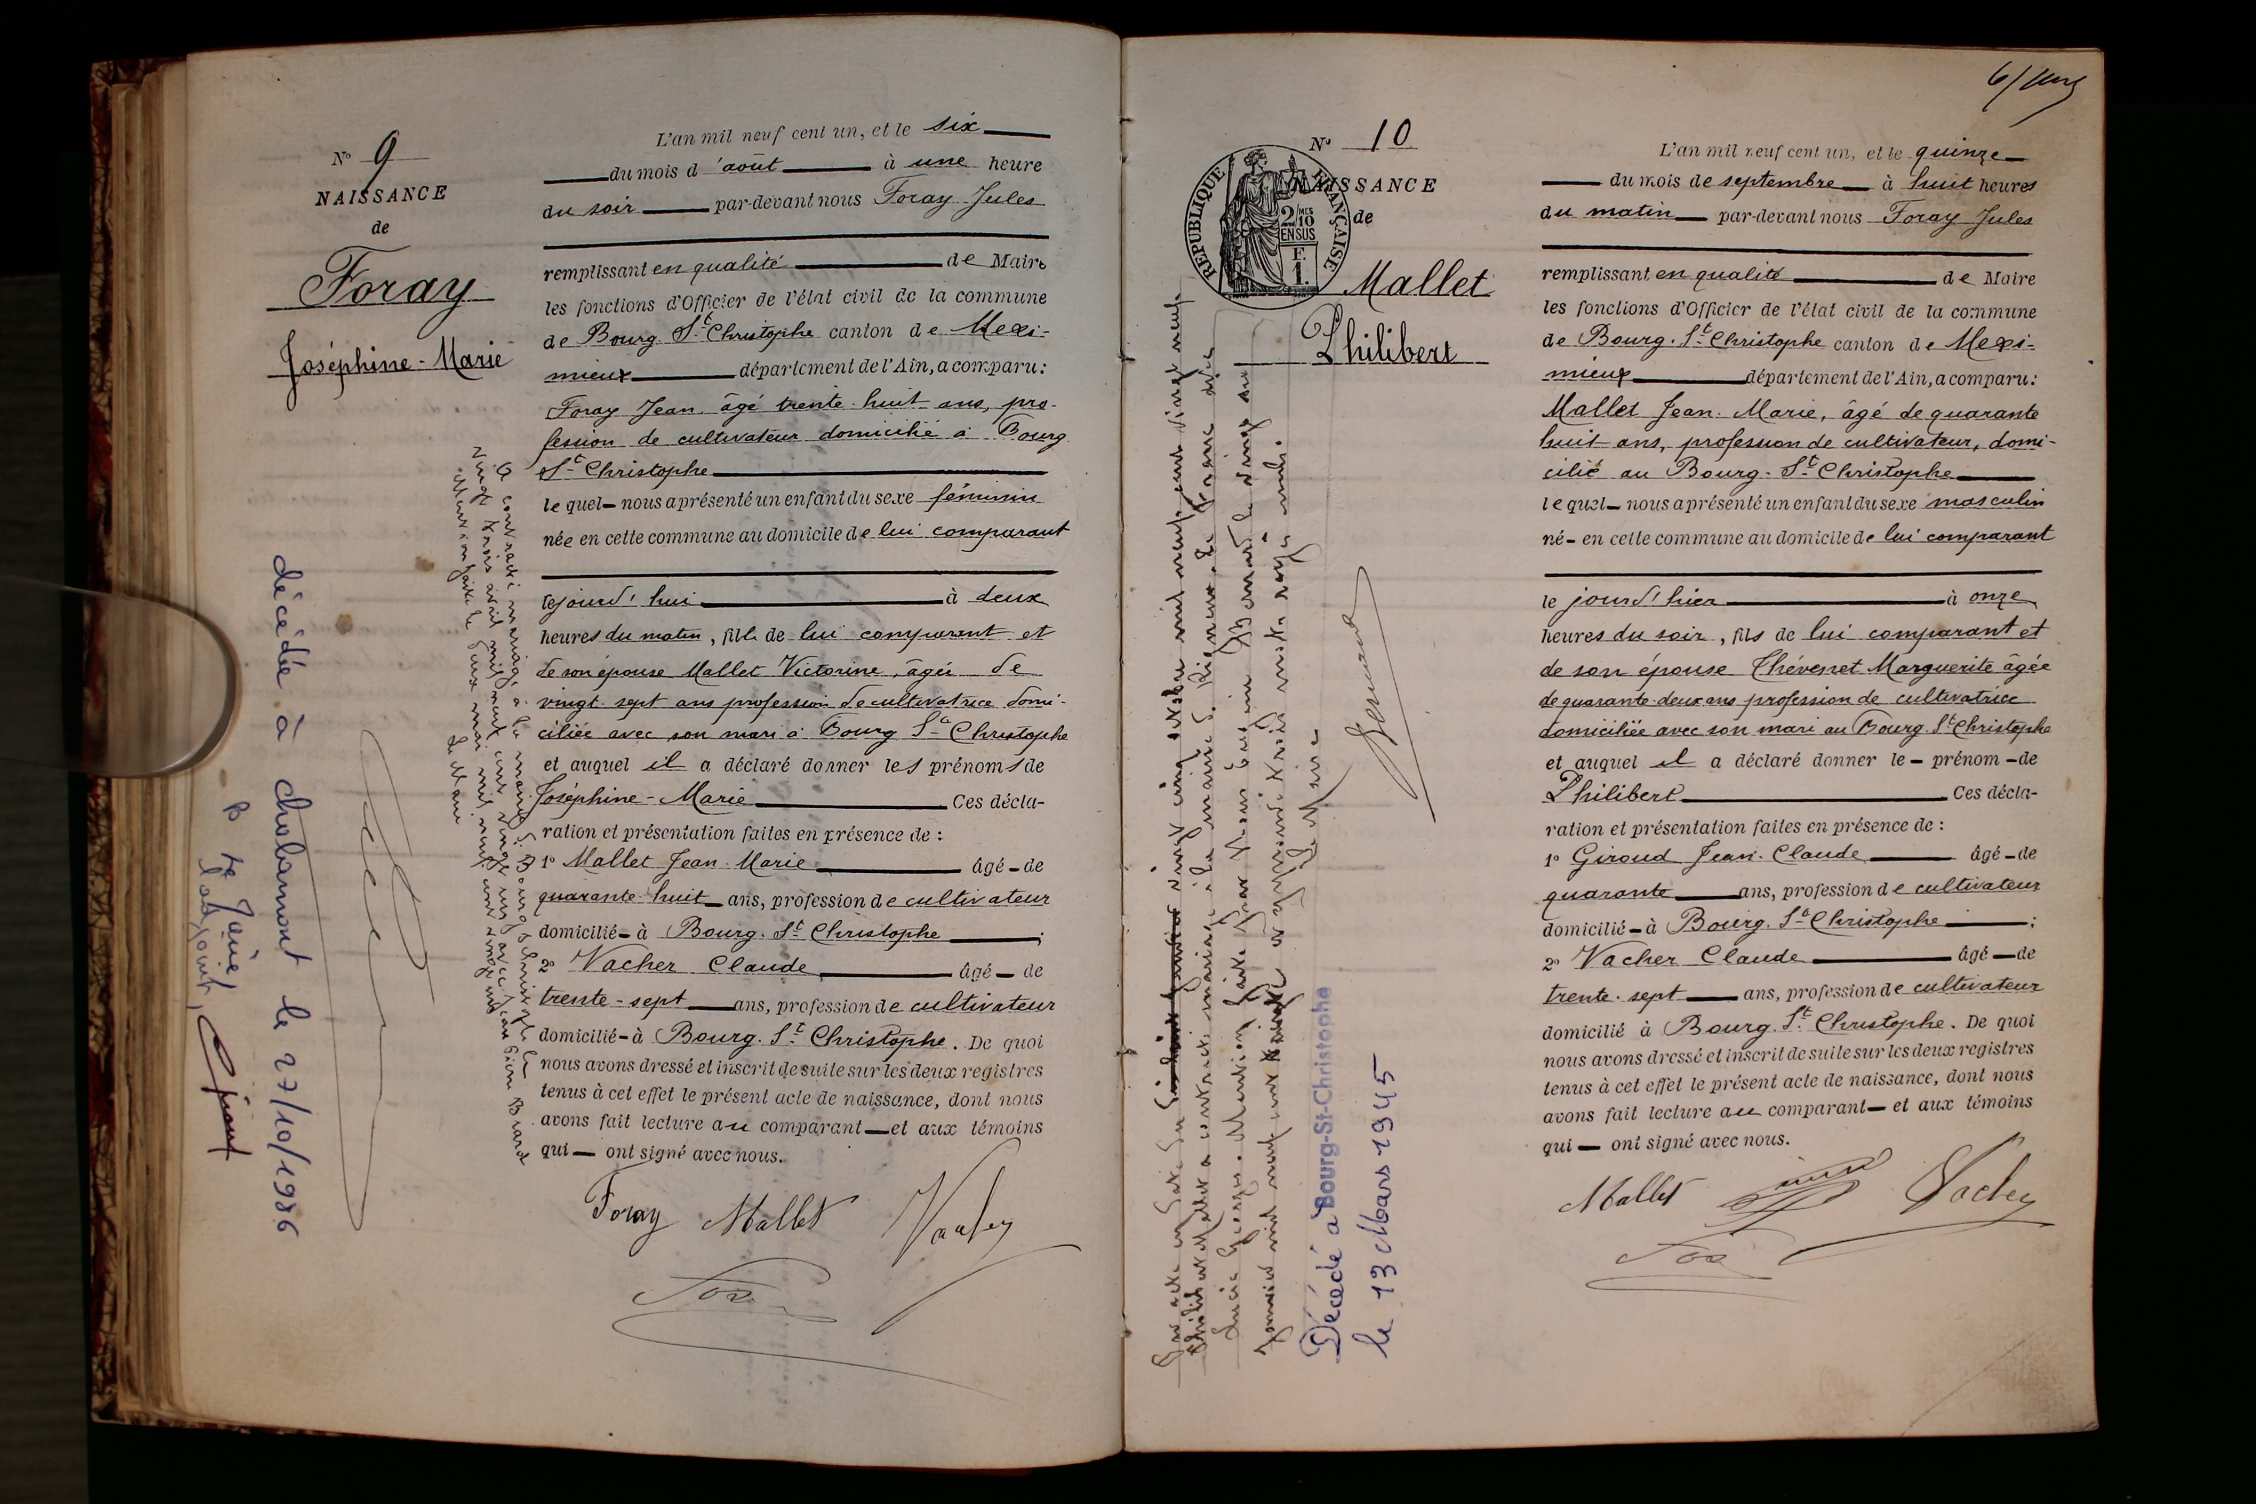 N° 9
NAISSANCE
de
Foray
Joséphine-Marie
L'an mil neuf cent un, et le six
du mois d'août à une heure
du soir par-devant nous Foray Jules
remplissant en qualité de Maire
les fonctions d'Officier de l'état civil de la commune
de Bourg St Christophe canton de Mexi-
mieux département de l'Ain, a comparu:
Foray Jean âgé trente-huit ans, pro-
fession de cultivateur domicilié à Bourg
St Christophe
lequel nous a présenté un enfant du sexe féminin
née en cette commune au domicile de lui comparant
lejourd'hui à deux
heures du matin, fille de lui comparant et
de son épouse Mallet Victorine, âgée de
vingt-sept ans profession de cultivatrice domi-
ciliée avec son mari à Bourg St Christophe
et auquel il a déclaré donner les prénoms de
Joséphine-Marie Ces décla-
ration et présentation faites en présence de:
1° Mallet Jean-Marie âgé de
quarante-huit ans, profession de cultivateur
domicilié à Bourg-St Christophe;
2° Vacher Claude, âgé de
trente-sept ans, profession de cultivateur
domicilié à Bourg-St Christophe. De quoi
nous avons dressé et inscrit de suite sur les deux registres
tenus à cet effet le présent acte de naissance, dont nous
avons fait lecture au comparant et aux témoins
qui ont signé avec nous.
Foray Mallet Vacher
A contracté mariage à la mairie de Bourg St Christophe le
vingt trois avril mil neuf cent vingt
Mention faite le deux mai mil neuf cent vingt
Le Maire
décédée à Chalamont le 27/10/1986
P. le Maire
l'adjoint,
N° 10
NAISSANCE
de
REPUBLIQUE FRANÇAISE
2/10 MES
EN SUS
F.
1.
Mallet
Philibert
6/
L'an mil neuf cent un, et le quinze
du mois de septembre à huit heures
du matin par-devant nous Foray Jules
remplissant en qualité de Maire
les fonctions d'Officier de l'état civil de la commune
de Bourg-St Christophe canton de Mexi-
mieux département de l'Ain, a comparu:
Mallet Jean-Marie, âgé de quarante
huit ans, profession de cultivateur, domi-
cilié au Bourg-St Christophe
lequel nous a présenté un enfant du sexe masculin
né en cette commune au domicile de lui comparant
le jourd'hier à onze
heures du soir, fils de lui comparant et
de son épouse Thévenet Marguerite âgée
de quarante-deux ans profession de cultivatrice
domiciliée avec son mari au Bourg-St Christophe
et auquel il a déclaré donner le prénom de
Philibert Ces décla-
ration et présentation faites en présence de:
1° Giroud Jean-Claude âgé de
quarante ans, profession de cultivateur
domicilié à Bourg-St Christophe;
2° Vacher Claude âgé de
trente-sept ans, profession de cultivateur
domicilié à Bourg-St Christophe. De quoi
nous avons dressé et inscrit de suite sur les deux registres
tenus à cet effet le présent acte de naissance, dont nous
avons fait lecture au comparant et aux témoins
qui ont signé avec nous.
Mallet Vacher
Philibert Mallet a contracté mariage à la mairie de
Mention faite par nous
janvier mil neuf cent
Le Maire
Décédé à Bourg-St-Christophe
le 13 Mars 1945